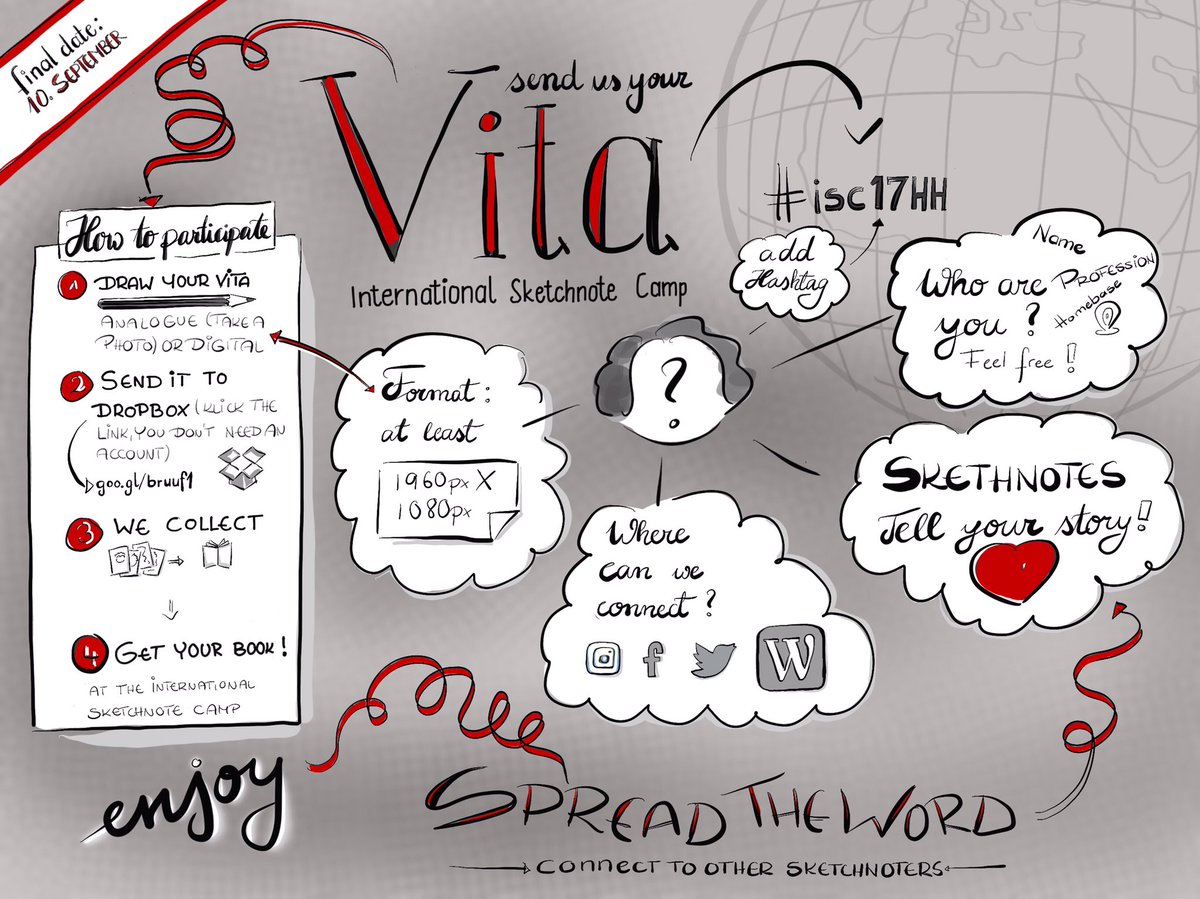 final date:
10. SEPTEMBER
send us your
Vita
International Sketchnote Camp
#isc17HH
add
Hashtag
How to participate
1 DRAW YOUR VITA
ANALOGUE (TAKE A
PHOTO) OR DIGITAL
2 SEND IT TO
DROPBOX (KLICK THE
LINK, YOU DON'T NEED AN
ACCOUNT)
goo.gl/bruuf1
3 WE COLLECT
4 GET YOUR BOOK!
AT THE INTERNATIONAL
SKETCHNOTE CAMP
Format:
at least
1960px X
1080px
?
Name
Who are PROFESSION
you? Homebase
Feel free!
SKETHNOTES
Tell your story!
Where
can we
connect?
f W
enjoy
SPREAD THE WORD
CONNECT TO OTHER SKETCHNOTERS